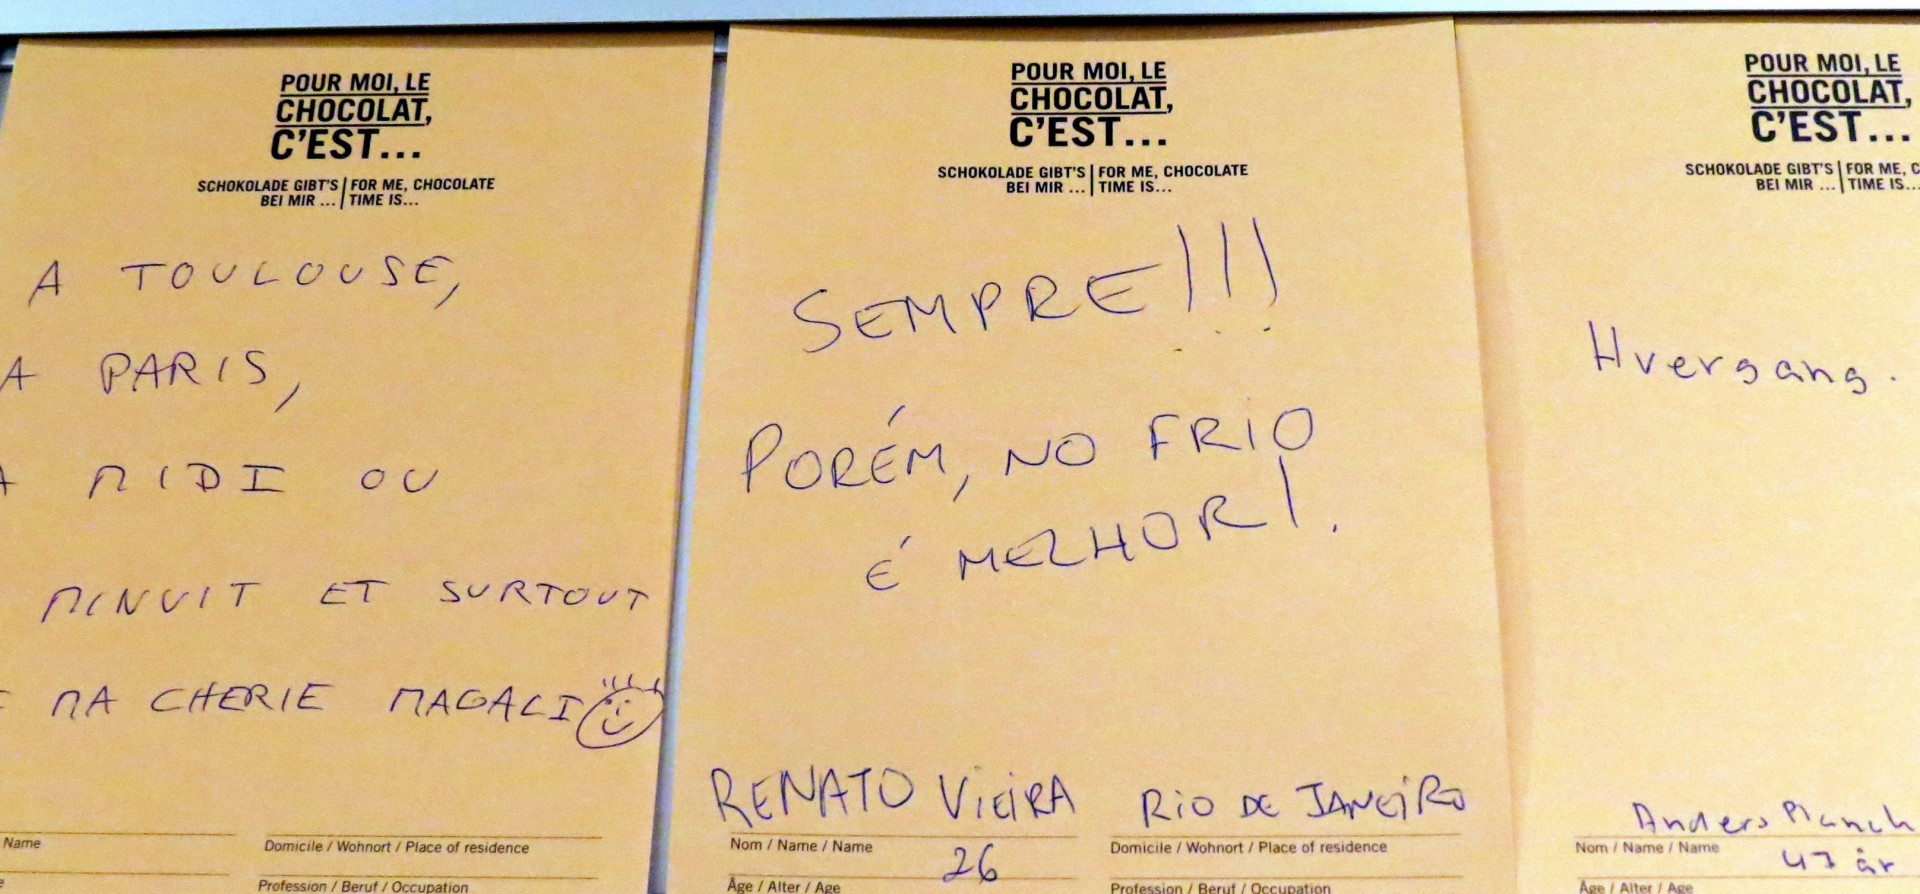 POUR MOI, LE
CHOCOLAT,
C'EST...
SCHOKOLADE GIBT'S | FOR ME, CHOCOLATE
BEI MIR ... | TIME IS...
A TOULOUSE,
A PARIS,
A MIDI OU
MINUIT ET SURTOUT
MA CHERIE MAGALI
Name
Domicile / Wohnort / Place of residence
Profession / Beruf / Occupation
POUR MOI, LE
CHOCOLAT,
C'EST...
SCHOKOLADE GIBT'S | FOR ME, CHOCOLATE
BEI MIR ... | TIME IS...
SEMPRE!!!
PORÉM, NO FRIO
É MELHOR!.
RENATO VIEIRA RIO DE JANEIRO
Nom / Name / Name Domicile / Wohnort / Place of residence
26
Âge / Alter / Age Profession / Beruf / Occupation
POUR MOI, LE
CHOCOLAT,
C'EST...
SCHOKOLADE GIBT'S | FOR ME, C
BEI MIR ... | TIME IS...
Hvergang.
Anders
Nom / Name / Name
47 år
Âge / Alter / Age